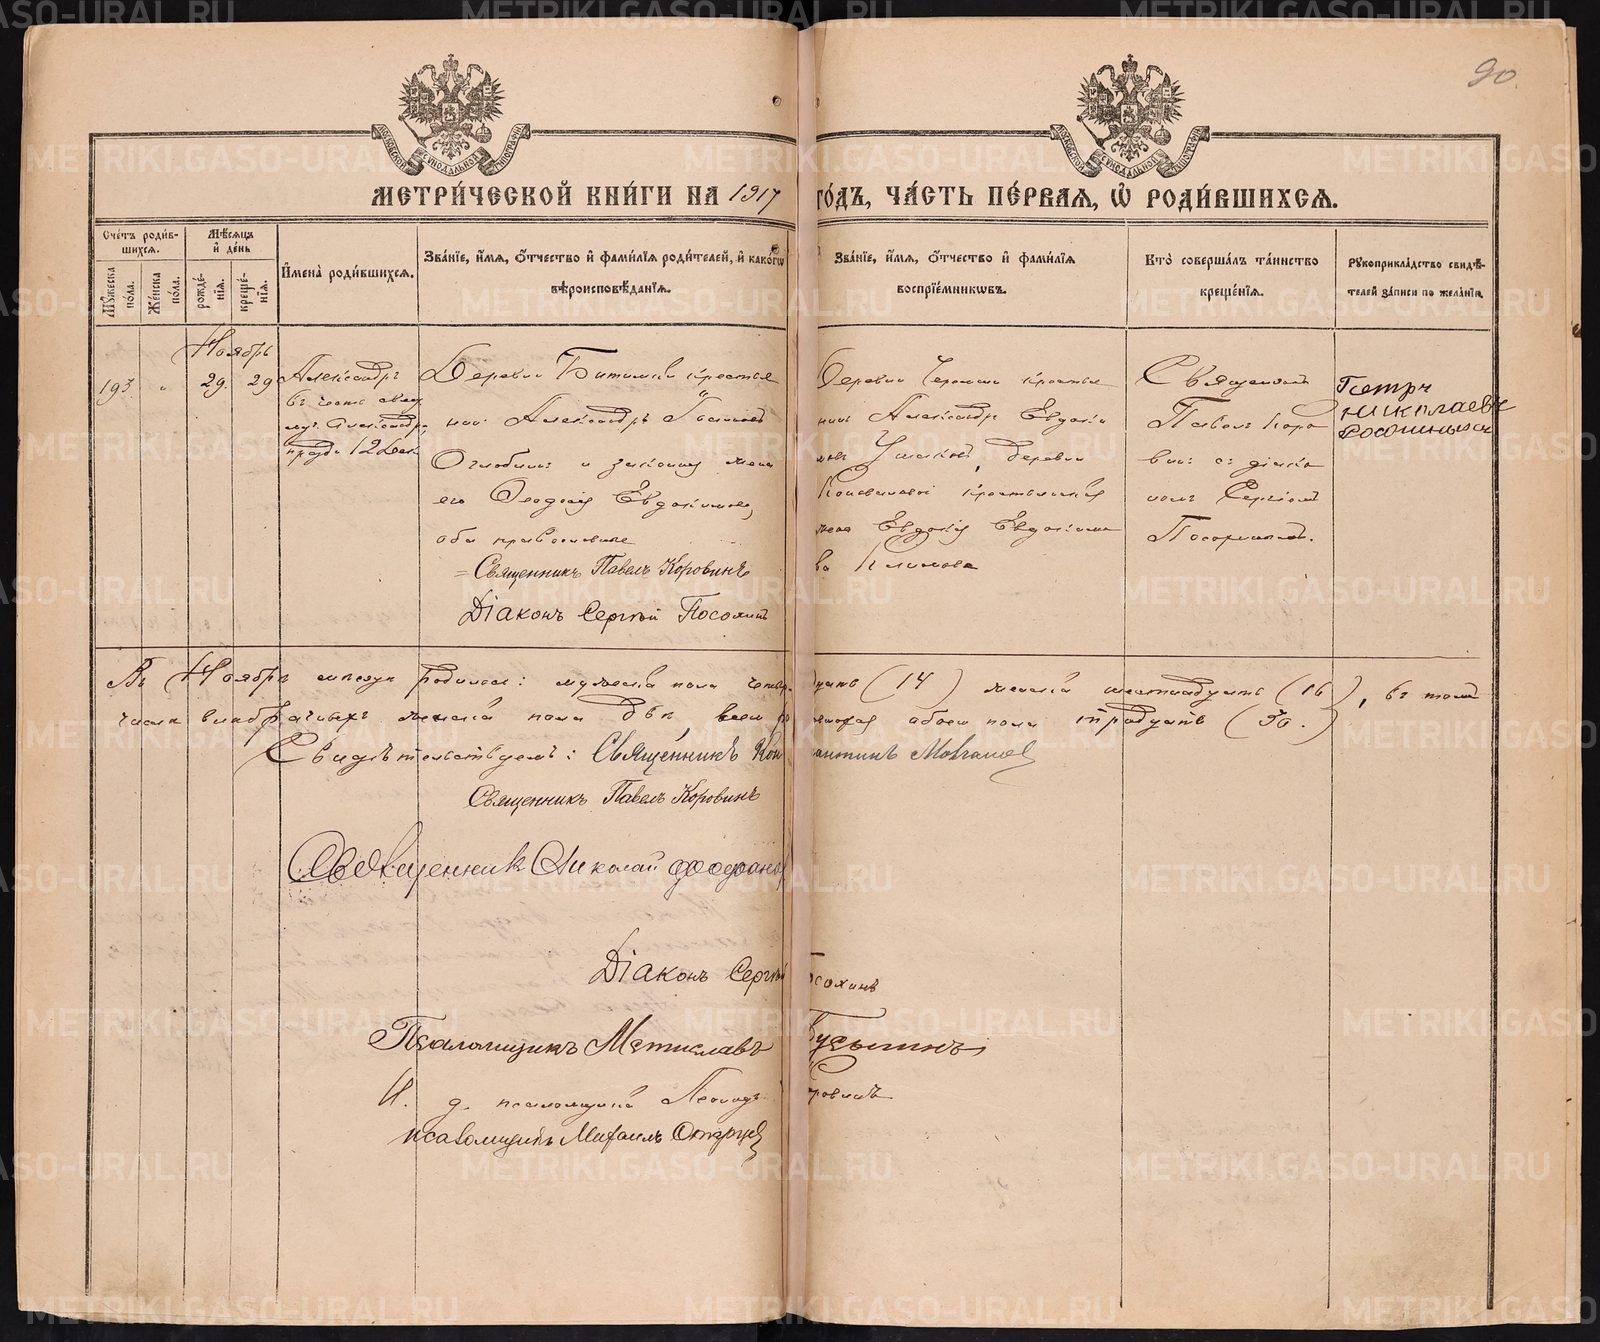 90.
МЕТРИ́ЧЕСКОЙ КНИ́ГИ НА 1917 ГО́ДЪ, ЧА́СТЬ ПЕ́РВАЯ, Ѡ҆ РОДИ́ВШИХСЯ.
Сче́тъ роди́в-
шихся.
Мꙋ́жеска по́ла.
Же́нска по́ла.
Мѣ́сяцъ и҆ де́нь
рожде́-
нія.
креще́-
нія.
И҆мена̀ роди́вшихся.
Зва́ніе, и҆́мя, ѻ҆́тчество и҆ фами́лія роди́телей, и҆ како́гѡ
вѣроисповѣ́данія.
Зва́ніе, и҆́мя, ѻ҆́тчество и҆ фами́лія
воспріе́мникѡвъ.
Кто̀ соверша́лъ та́инство
креще́нія.
Рꙋкоприкла́дство свидѣ́-
телей за́писи по жела́нію.
Ноябрь
193. " 29. 29
Александръ
въ честь
муч. Александра,
празд. 12 Дек.
Деревни Битимки крестья
нинъ Александръ
Оглоблинъ и законная жена
его Ѳеодосія Евдокимова,
оба православные
= Священникъ Павелъ Коровинъ
Діаконъ Сергѣй Посохинъ
Деревни крестья
нинъ Александръ Евдоки
мовъ Ушаковъ, деревни
Коноваловой крестьянская
жена Евдокія Евдокимо
ва Климова
Священникъ
Павелъ Коро
винъ съ діако
номъ Сергіемъ
Посохинымъ.
Петръ
Николаевъ
Въ Ноябрѣ мѣсяцѣ родилось: мужеска пола четыр надцать (14) женска шестнадцать (16), въ томъ
числѣ внѣбрачныхъ женска пола двѣ всего обоего пола тридцать (30.)
Свидѣтельствуемъ: Священникъ Константинъ
Священникъ Павелъ Коровинъ
Священник Николай
Діаконъ Сергѣй Посохинъ
Псаломщикъ Мстиславъ
И. д. псаломщика Леонидъ Коровинъ
псаломщикъ Михаилъ
METRIKI.GASO-URAL.RU